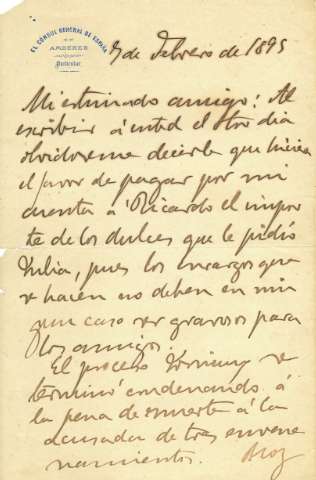 EL CONSUL GENERAL DE ESPAÑA
EN
AMBERES
Particular
7 de Febrero de 1895
Mi estimado amigo: Al
escribir á usted el otro dia
olvidóseme decirle que hiciera
el favor de pagar por mi
cuenta á Ricardo el impor
te de los dulces que le pidió
Julia, pues los encargos que
se hacen no deben en nin
gun caso ser gravosos para
los amigos.
El proceso Joniaux se
terminó condenando á
la pena de muerte á la
acusada de tres envene
namientos.